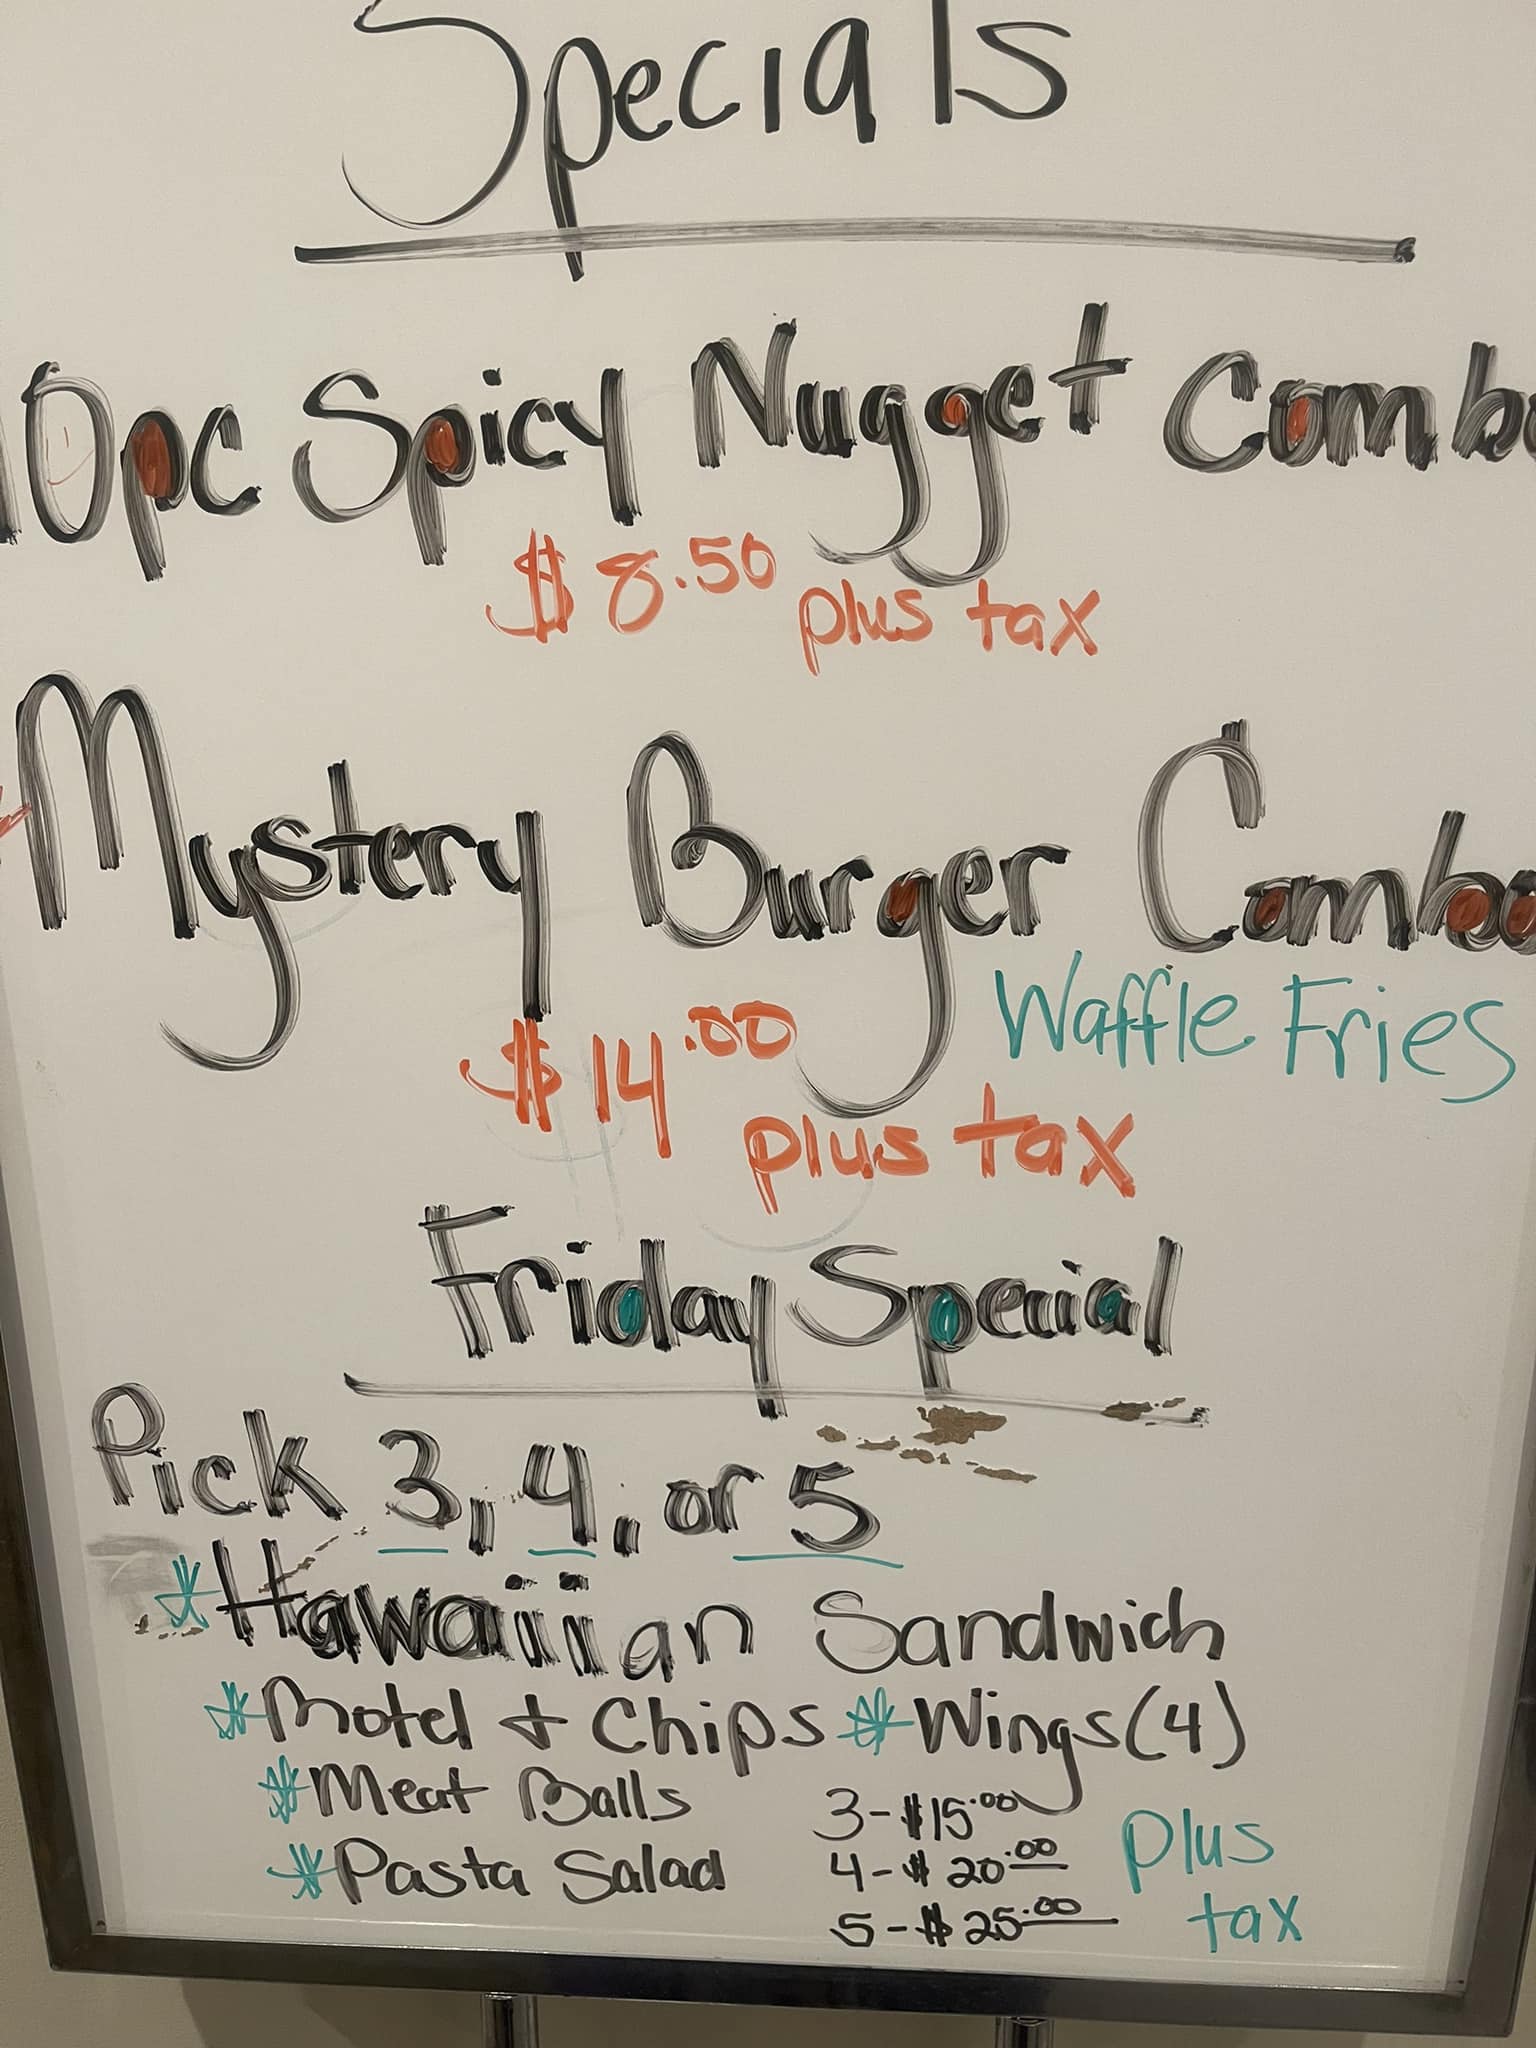 Specials
10pc Spicy Nugget Combo
$8.50 plus tax
Mystery Burger Combo
Waffle Fries
$14.00 plus tax
Friday Special
Pick 3, 4, or 5
*Hawaiiian Sandwich
*Motel + Chips *Wings (4)
*Meat Balls
*Pasta Salad
3-$15.00
4-$20.00
5-$25.00
plus
tax